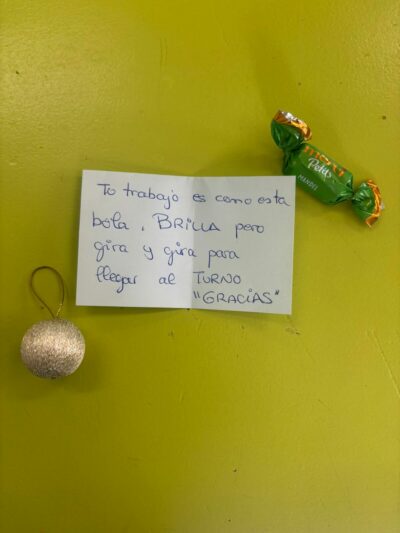 Tu trabajo es como esta
bola, BRILLA pero
gira y gira para
llegar al TURNO
"GRACIAS"
Petäs
MANDEL